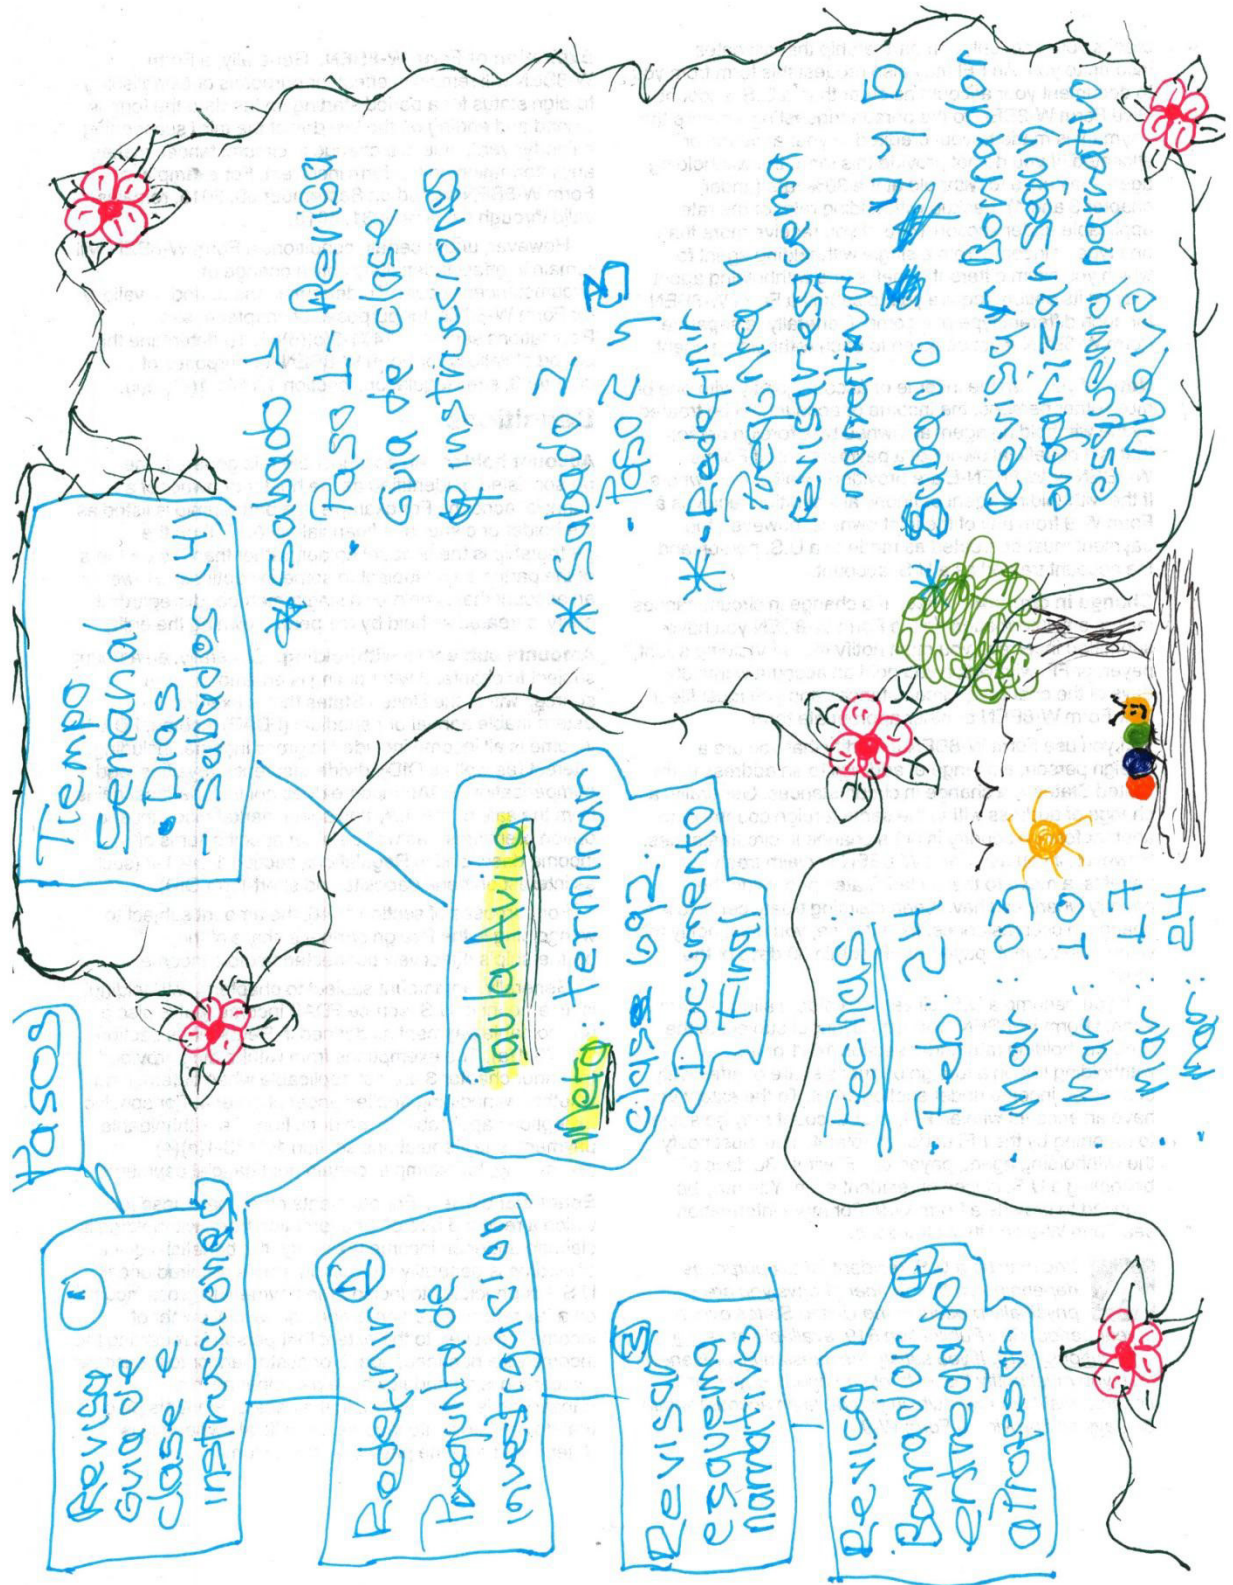 Pasos
Revisa ①
Guia de
clase e
instrucciones
Redefinir ②
Pregunta de
investigación
Revisar ③
esquema
narrativo
Revisa ④
Borrador
entregado
a Profesor
Paula Avila
metra: terminar
clase 692.
Documento
Final
Fechas
Feb 24
. Mar: 03
. Mar: 10
. Mar: 17
. Mar: 24
Tiempo
Semanal
. Dias
Sabados (4)
* Sabado 1
. Paso 1 Revisa
Guia de clase
& instrucciones
* Sabado 2
. Paso 2 y 3
* . Redefinir
Preg Inv
revisar esquema
narrativo
* Sabado 4 y 5
Revisar Borrador
organizar según
esquema narrativo
nuevo